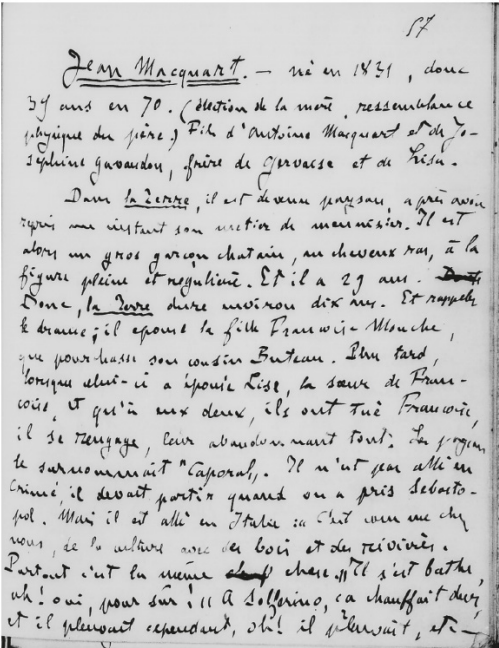 57
Jean Macquart. — né en 1831, donc
39 ans en 70. (Élection de la mère, ressemblance
physique du père) Fils d'Antoine Macquart et de Jo-
séphine Gavaudan, frère de Gervaise et de Lisa.
Dans la Terre, il est devenu paysan, après avoir
repris un instant son métier de menuisier. Il est
alors un gros garçon chatain, aux cheveux ras, à la
figure pleine et régulière. Et il a 29 ans.
Donc, la Terre dure environ dix ans. Et rappeler
le drame; il épouse la fille Françoise Mouche,
que pourchasse son cousin Buteau. Plus tard,
lorsque celui-ci a épousé Lise, la sœur de Fran-
çoise, et qu'à eux deux, ils ont tué Françoise,
il se rengage, leur abandonnant tout. Les paysans
le surnommait "Caporal". Il n'est pas allé en
Crimée, il devait partir quand on a pris Sébasto-
pol. Mais il est allé en Italie : « C'est comme chez
nous, de la culture avec des bois et des rivières.
Partout c'est la même chose. » Il s'est battu,
oh! oui, pour sûr! « A Solférino, ça chauffait dur,
et il pleuvait cependant, oh! il pleuvait, etc —